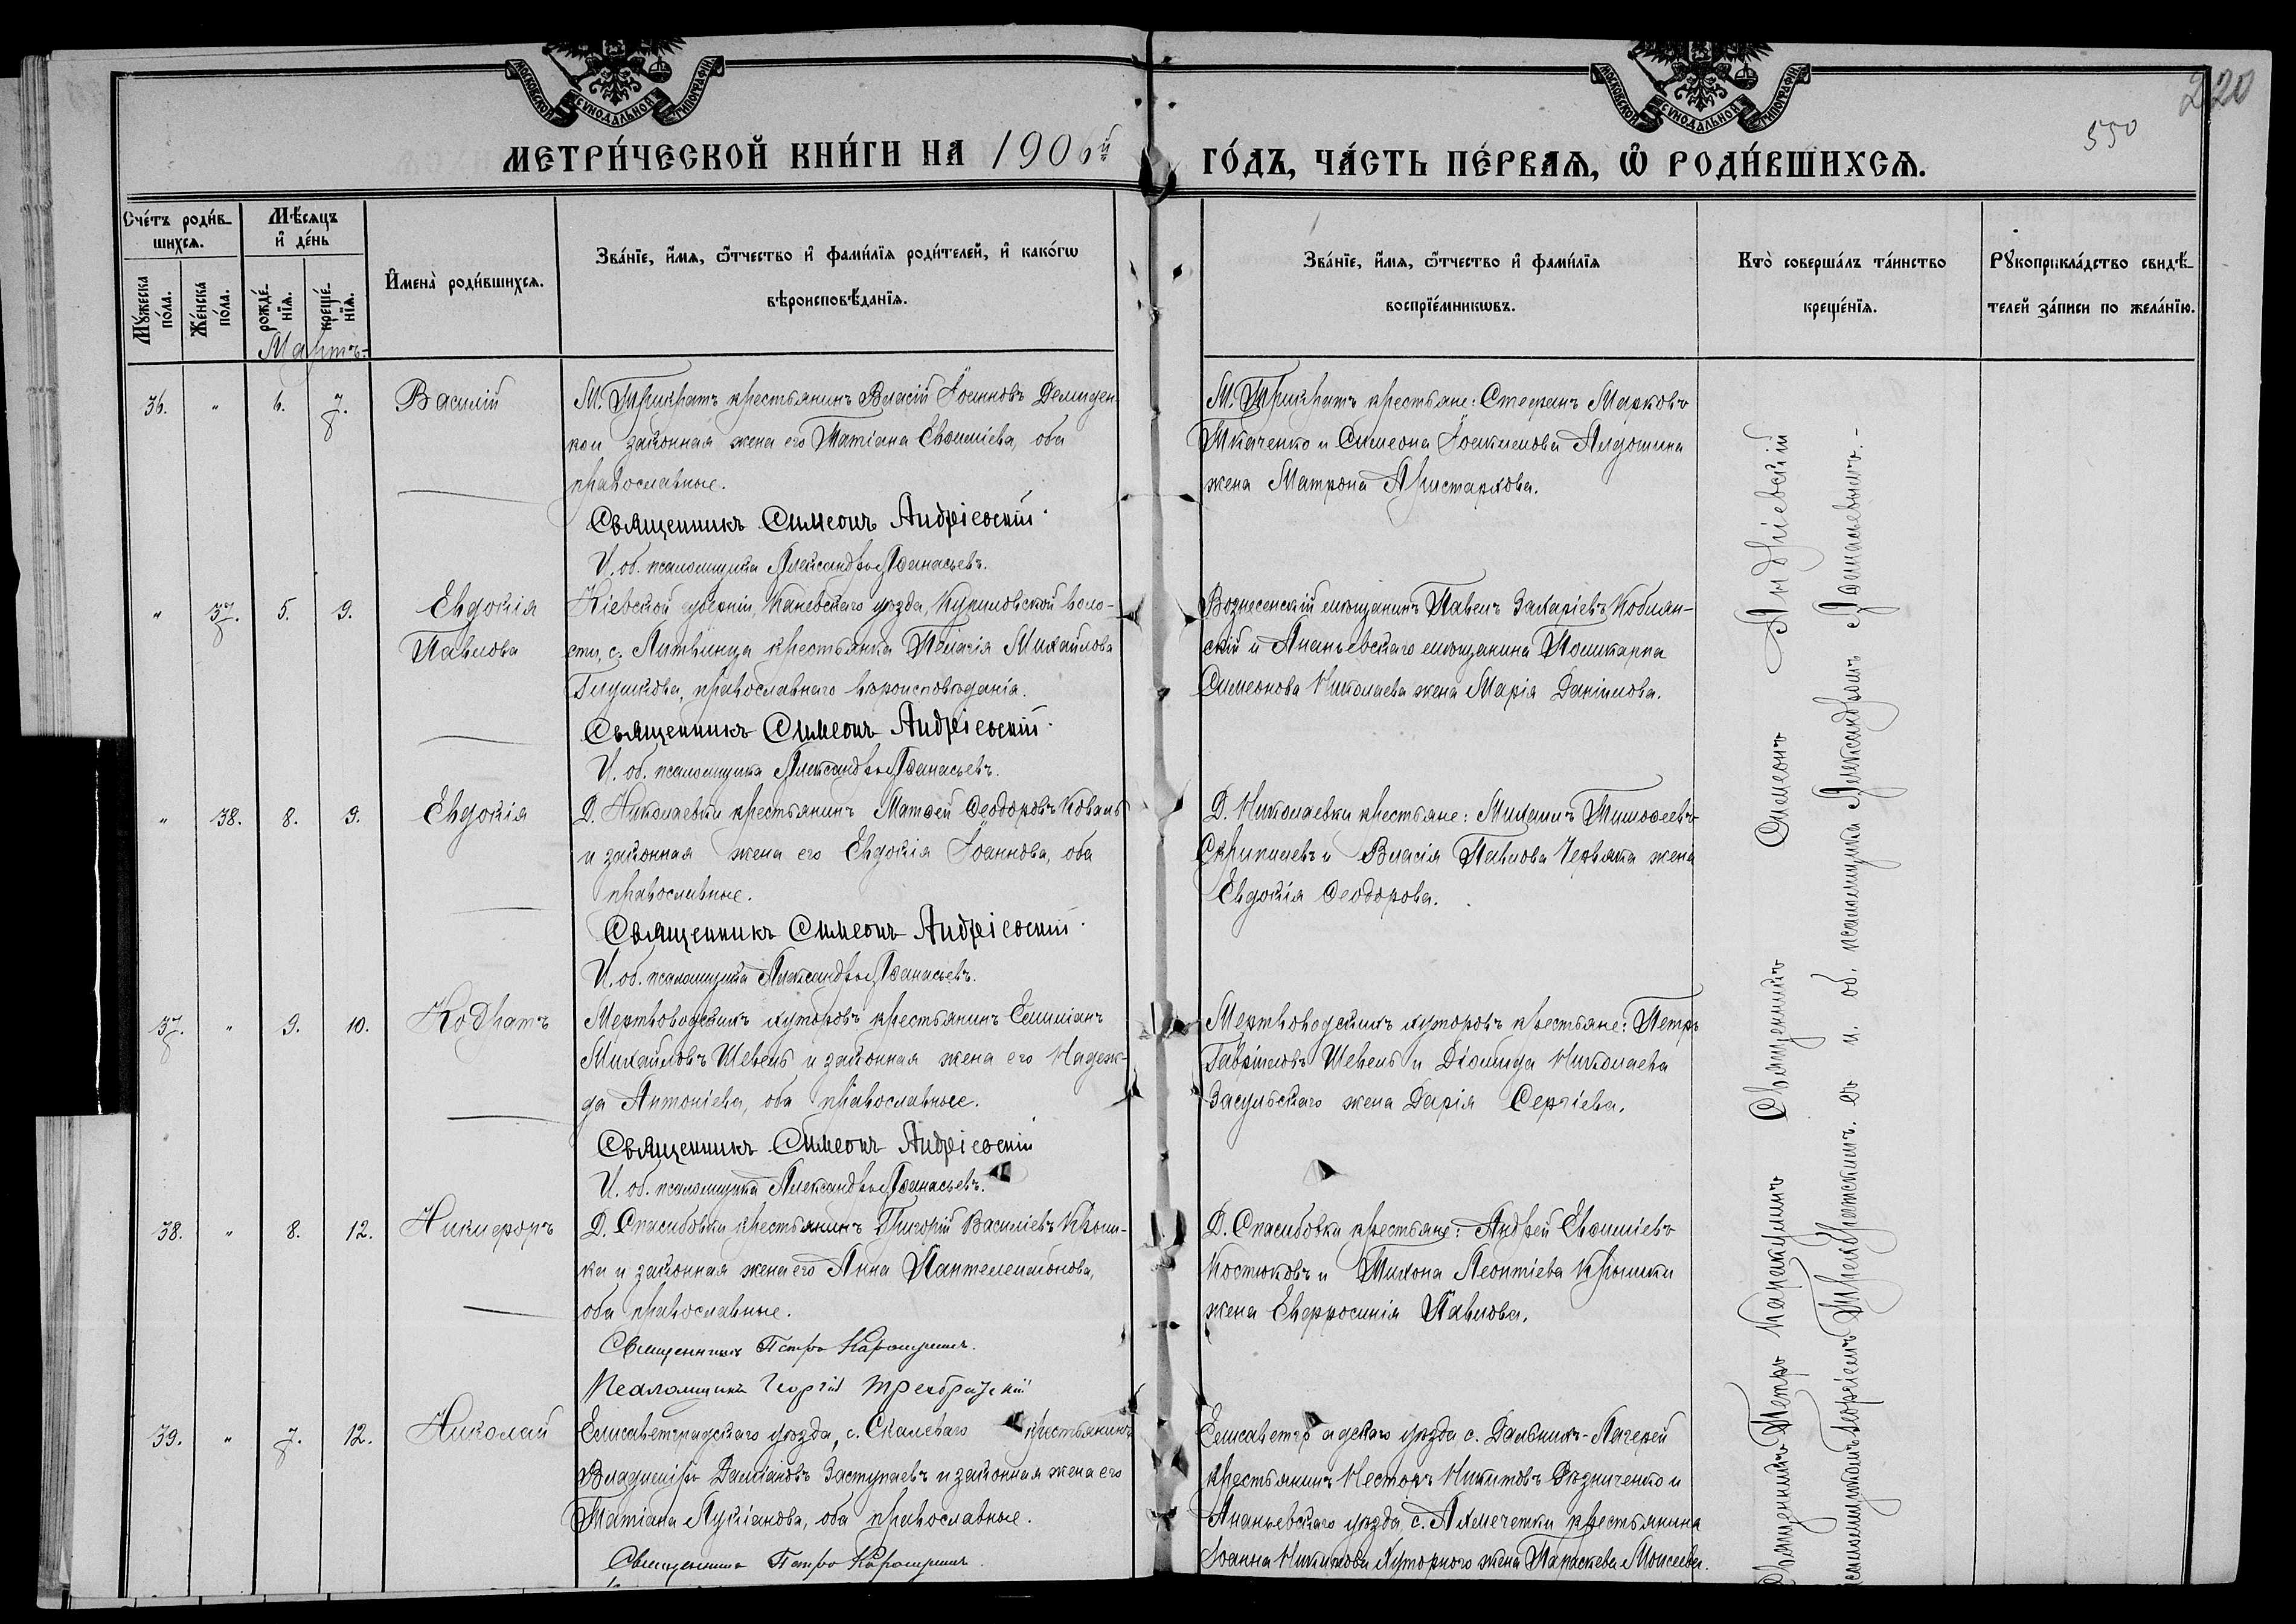 МОСКОВСКОЙ СѴНОДАЛЬНОЙ ТИПОГРАФІИ
МОСКОВСКОЙ СѴНОДАЛЬНОЙ ТИПОГРАФІИ
220
550
МЕТРИ́ЧЕСКОЙ КНИ́ГИ НА 1906й ГО́ДЪ, ЧА́СТЬ ПЕ́РВАѦ, Ѡ҆ РОДИ́ВШИХСѦ.
Сче́тъ роди́в-
шихсѧ.
Мꙋ́жеска по́ла.
Же́нска по́ла.
Мѣ́сѧцъ
и҆ де́нь
рожде́-
нїѧ.
креще́-
нїѧ.
И҆мена̀ роди́вшихсѧ.
Зва́нїе, и҆́мѧ, ѻ҆́тчество и҆ фами́лїѧ роди́телей, и҆ како́гѡ
вѣроисповѣ́данїѧ.
Зва́нїе, и҆́мѧ, ѻ҆́тчество и҆ фами́лїѧ
воспрїе́мникѡвъ.
Кто̀ соверша́лъ та́инство
креще́нїѧ.
Рꙋкоприкла́дство свидѣ́-
телей за́писи по жела́нїю.
Мартъ
36. " 6. 7. Василій
М. Трикратъ крестьянинъ Власій Іоанновъ Демиден
ко и законная жена его Татіана Евфиміева, оба
православные.
Священникъ Симеонъ Андріевскій
И. об. псаломщика Александръ Афанасьевъ.
М. Трикратъ крестьяне: Стефанъ Марковъ
Ткаченко и Симеона Іоакимова Алдошина
жена Матрона Аристархова.
" 37. 5. 9. Евдокія
Павлова
Кіевской губерніи, Каневскаго уѣзда, Куриловской воло-
сти, с. Литвинца крестьянка Пелагія Михайлова
Глушкова, православнаго вѣроисповѣданія.
Священникъ Симеонъ Андріевскій
И. об. псаломщика Александръ Афанасьевъ.
Вознесенскій мѣщанинъ Павелъ Захаріевъ Коблян-
скій и Ананьевскаго мѣщанина Поликарпа
Симеонова Николаева жена Марія Даніилова.
" 38. 8. 9. Евдокія
Д. Николаевки крестьянинъ Матѳей Ѳеодоровъ Коваль
и законная жена его Евдокія Іоаннова, оба
православные.
Священникъ Симеонъ Андріевскій
И. об. псаломщика Александръ Афанасьевъ.
Д. Николаевки крестьяне: Михаилъ Тимоѳеевъ
Скрипилевъ и Власія Павлова Червяка жена
Евдокія Ѳеодорова.
37. " 9. 10. Кодратъ
Мертвоводскихъ хуторовъ крестьянинъ Емиліанъ
Михайловъ Шевель и законная жена его Надеж-
да Антоніева, оба православные.
Священникъ Симеонъ Андріевскій
И. об. псаломщика Александръ Афанасьевъ.
Мертвоводскихъ хуторовъ крестьяне: Петръ
Гавріиловъ Шевель и Діомида Николаева
Засульскаго жена Дарія Сергіева.
38. " 8. 12. Никифоръ
Д. Спасибовки крестьянинъ Григорій Василіевъ Крыш-
ка и законная жена его Анна Пантелеимонова,
оба православные.
Священникъ Петръ Каракулинъ.
Псаломщикъ Георгій Трехбратскій
Д. Спасибовки крестьяне: Андрей Евфиміевъ
Костюковъ и Тихона Леонтіева Крышки
жена Евфросинія Павлова.
39. " 7. 12. Николай
Елисаветградскаго уѣзда, с. Скалеваго крестьянинъ
Владиміръ Даміановъ Заступаевъ и законная жена его
Татіана Лукіанова, оба православные.
Священникъ Петръ Каракулинъ.
Елисаветградскаго уѣзда с. Дальнихъ-Лагерей
крестьянинъ Несторъ Никитовъ Рѣзниченко и
Ананьевскаго уѣзда, с. Ахмечетки крестьянина
Іоанна Никитова Хуторного жена Параскева Моисеева.
Священникъ Петръ Каракулинъ Священникъ Симеонъ Андріевскій
псаломщикомъ Георгіемъ Трехбратскимъ. съ и. об. псаломщика Александромъ Афанасьевымъ.-